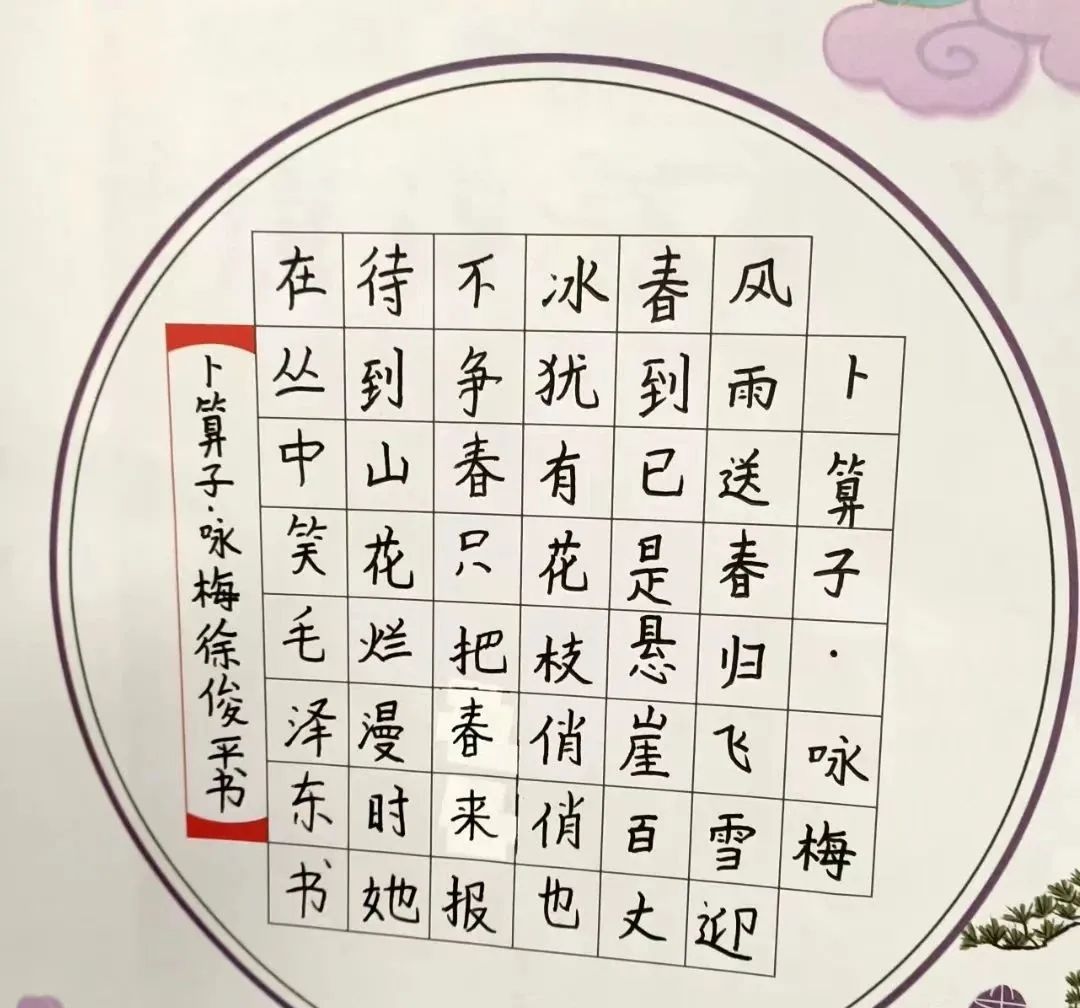 卜算子·咏梅
风雨送春归飞雪迎
春到已是悬崖百丈
冰犹有花枝俏俏也
不争春只把春来报
待到山花烂漫时她
在丛中笑毛泽东书
卜算子·咏梅徐俊平书